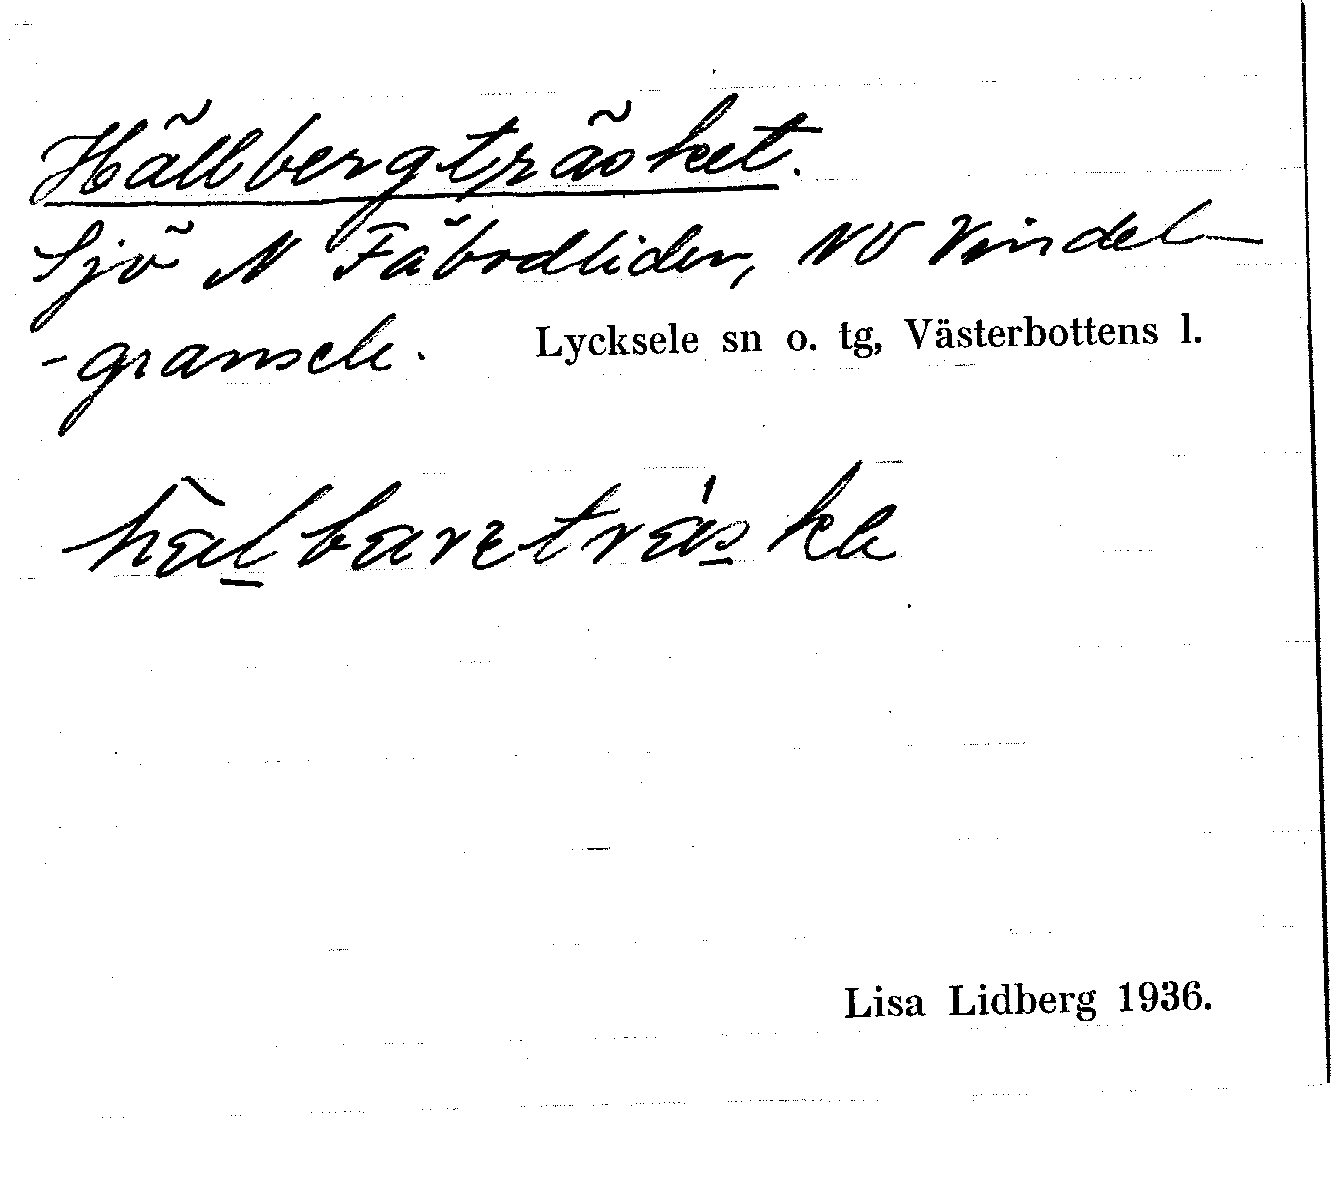 Hällbergträsket.
Sjö N Fäbodliden, NV Vindel-
-gransele. Lycksele sn o. tg, Västerbottens l.
Lisa Lidberg 1936.